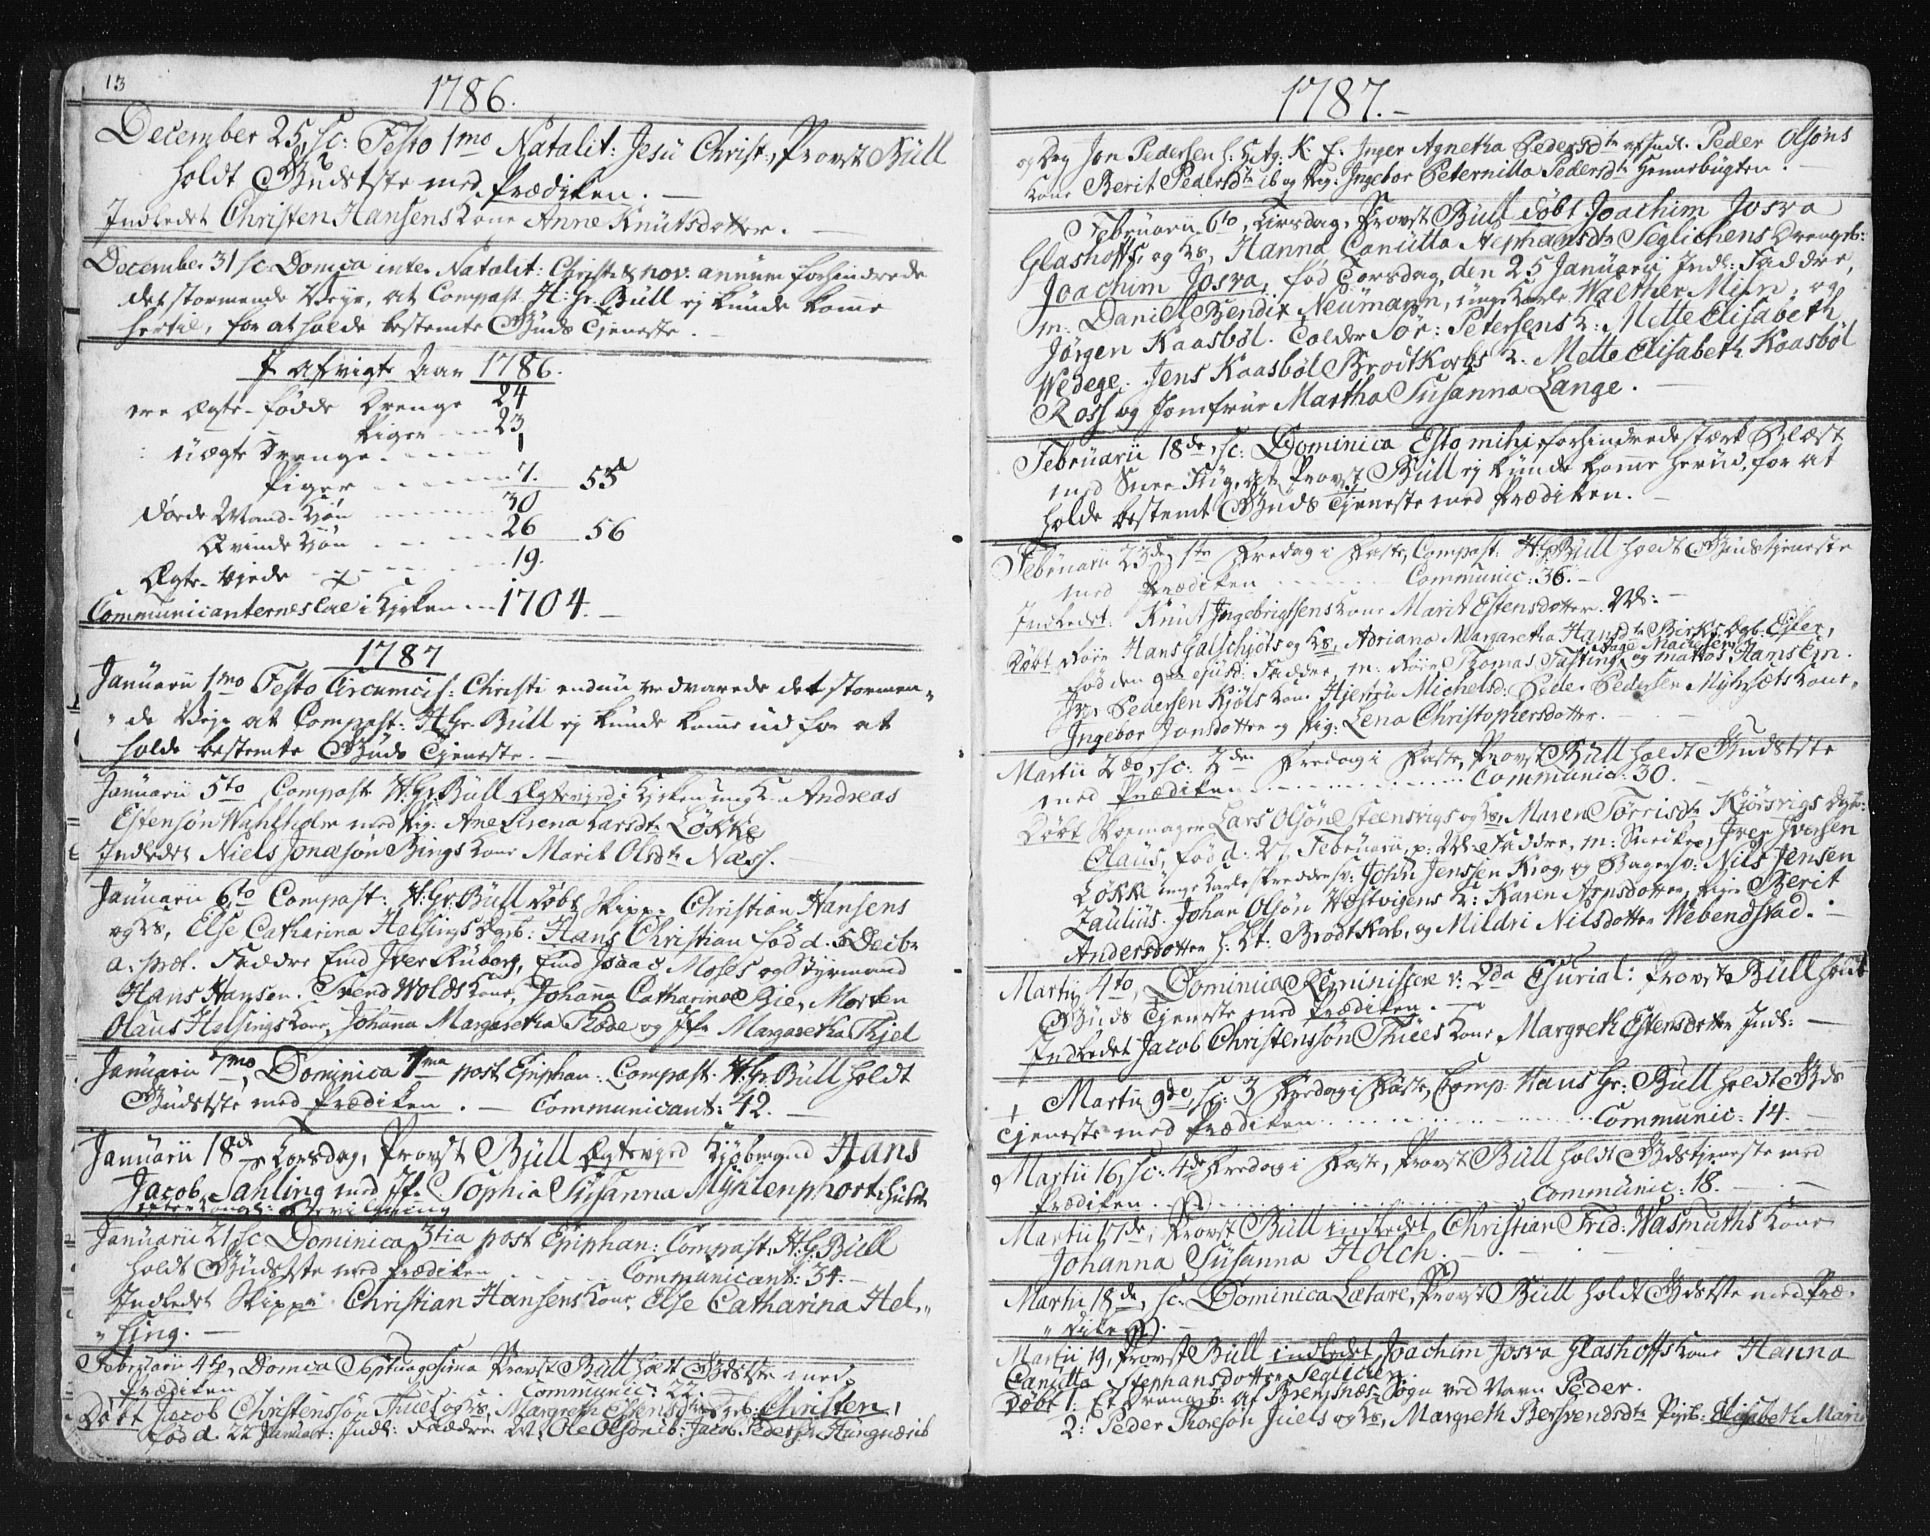 13
1786.
December 25, sc: Festo 1mo Natalit: Jesu Christ, Provst Büll
holdt Gudstste med Prædiken. —
Indledet Christen Hansens Kone Anne Knutsdotter. —
December 31 sc Domca inter Natalit: Christi & nov: annum forhindrede
det stormende Vejr, at Compast: H: Gr: Büll ej kunde komme
hertil, for at holde bestemte Guds Tjeneste. —
I afvigte Aar 1786.
ere Ægte-fødde Drenge 24
Piger 23
uægte Drenge 1
Piger 7. 55
døde Mand-Kjøn 30
Qvinde Kjøn 26 56
Ægte-viede 19.
Communicanternes Tal i Kirken 1704. —
1787
Januarii 1mo Festo Circumcis: Christi endnu vedvarede det stormen„
„de Vejr at Compast: H Gr: Büll ej kunde komme ud for at
holde bestemte Guds Tjeneste. —
Januarii 5to Compast H: Gr: Büll Ægteviede i Kirken ungk: Andreas
Estensøn Wahlholm med Pig: Ane Sirena Larsdtr Løkke
Indledet Niels Jonasøn Bings Kone Marit Olsdtr Næss.
Januarii 6to Compast: H: Gr: Büll døbt Skipp: Christian Hansens
og Hs, Else Catharina Helsings Dgb: Hans Christian fød d. 5 Decbr
a: præt. Faddre Emd Iver Ruberg, Emd Isaac Moses og Styrmand
Hans Hansen. Svend Wolds Kone, Johanna Catharina Bie, Morten
Olaus Helsings Kone, Johanna Margaretha Thode og Jfr Margaretha Thjel
Januarii 7mo, Dominica 1ma post Epiphan: Compast. H: Gr: Büll holdt
Gudstste med Prædiken. — Communicant: 42. —
Januarii 18de Torsdag, Provst Büll Ægteviede Kjøbmand Hans
Jacob Sahling med Jfr: Sophia Susanna Mühlenphort i Huset
efter Kongl: Bevilgning
Januarii 21 sc Dominica 3tia post Epiphan: Compast: H: G: Büll
holdt Gudstste med Prædiken Communicant: 34. —
Indledet Skipper Christian Hansens Kone, Else Catharina Hel„
„sing. —
Februarii 4to, Domca Septuagesima Provst Büll holdt Gudstste med
Prædiken Communic: 22.
Døbt Jacob Christenssøn Thiel og Hs, Margreth Estensdtr Drb: Christen,
fød d. 22 Januar: Indl: Faddre Ole Olsøn Jacob Pedersen
1787. —
og Dreng Jon Pedersen Inger Agnetha Pedersdtr Peder Olsøns
Kone Berit Pedersdtr ib og Pig: Ingebor Peternilla Pedersdtr Hennebugten.
Februarii 6to, Tirsdag, Provst Büll døbt Joachim Josva
Glashoffs, og Hs, Hanna Canutta Stephansdtr Seglichens Drengeb:
Joachim Josva, fød Torsdag den 25 Januarii Indl: Faddre,
m: Daniel Bendix Neumann, unge Karle Walther Mijn, og
Jørgen Kaasbøl. Tolder Sør: Petersens K: Mette Elisabeth
Wedege. Jens Kaasbøl Brodtkorbs K. Mette Elisabeth Kaasbøl
Ross og Jomfrue Martha Susanna Lange. —
Februarii 18de, sc: Dominica Esto mihi, forhindrede stærk Blæst
med Snee Fog, at Provst Büll ej kunde komme herud, for at
holde bestemt Guds Tjeneste med Prædiken. —
Februarii 23de 1ste Fredag i Faste, Compast: H: G: Büll holdt Gudstjeneste
med Prædiken Communic: 36. —
Indledet: Knut Ingebrigtsens Kone Marit Estensdotter. —
Døbt Hans Galschjøts og Hs, Adriana Margaretha Hansdtr Birks Dgb: Ester,
fød den 9de ejusd: Faddre, m: Thomas Fasting, og Mattis Hansen.
Iver Pedersen Kjøls Kone Michelsd: Peder Pedersen Kone
Ingebor Jonsdotter og Pig: Lena Christophersdotter. —
Martii 2do, sc: 2den Fredag i Faste, Provst Büll holdt Gudstste
med Prædiken Communic: 30. —
Døbt Skomager Lars Olsøn Steensvigs og Hs, Maren Torrisdtr Kjørsvigs Dgb:
Olaus, fød d: 27 Februarii, Faddre, m: Snedker, Iver Iversen
Løkke unge Karle John Jenssen Krog, og Nils Jensen
Zaulius. Johan Olsøn Wæstvigens K: Karen Arnsdotter, Pige Berit
Andersdotter h: Lt: Brodtkorb, og Mildri Nilsdotter Webendstad. —
Martii 4to, Dominica Reminiscere v: 2da Esurial: Provst Büll holdt
Guds Tjeneste med Prædiken. —
Indledet Jacob Christenssøn Thiels Kone Margreth Estensdotter Indl: —
Martii 9de, sc: 3 Fredag i Faste, Comp: Hans Gr: Büll holdt Gds
Tjeneste med Prædiken Communic: 14. —
Martii 16, sc: 4de Fredag i Faste, Provst Büll holdt Gdstjeneste med
Prædiken Communic: 18. —
Martii 17de, Provst Büll indledet Christian Frid: Wasmuths Kone
Johanna Susanna Holch. —
Martii 18de, sc: Dominica Lætare, Provst Büll holdt Gdstste med Præ„
„diken. —
Martii 19, Provst Büll indledet Joachim Josva Glashoffs Kone Hanna
Canutta Stephansdotter Seglichen.
Døbt 1. Et Drengeb: af Breksnæs Sogn ved Navn Peder.
2: Peder Thoresøn Juels og Hs, Margreth Berhrendsdtr Pigeb: Elisabeth Maria